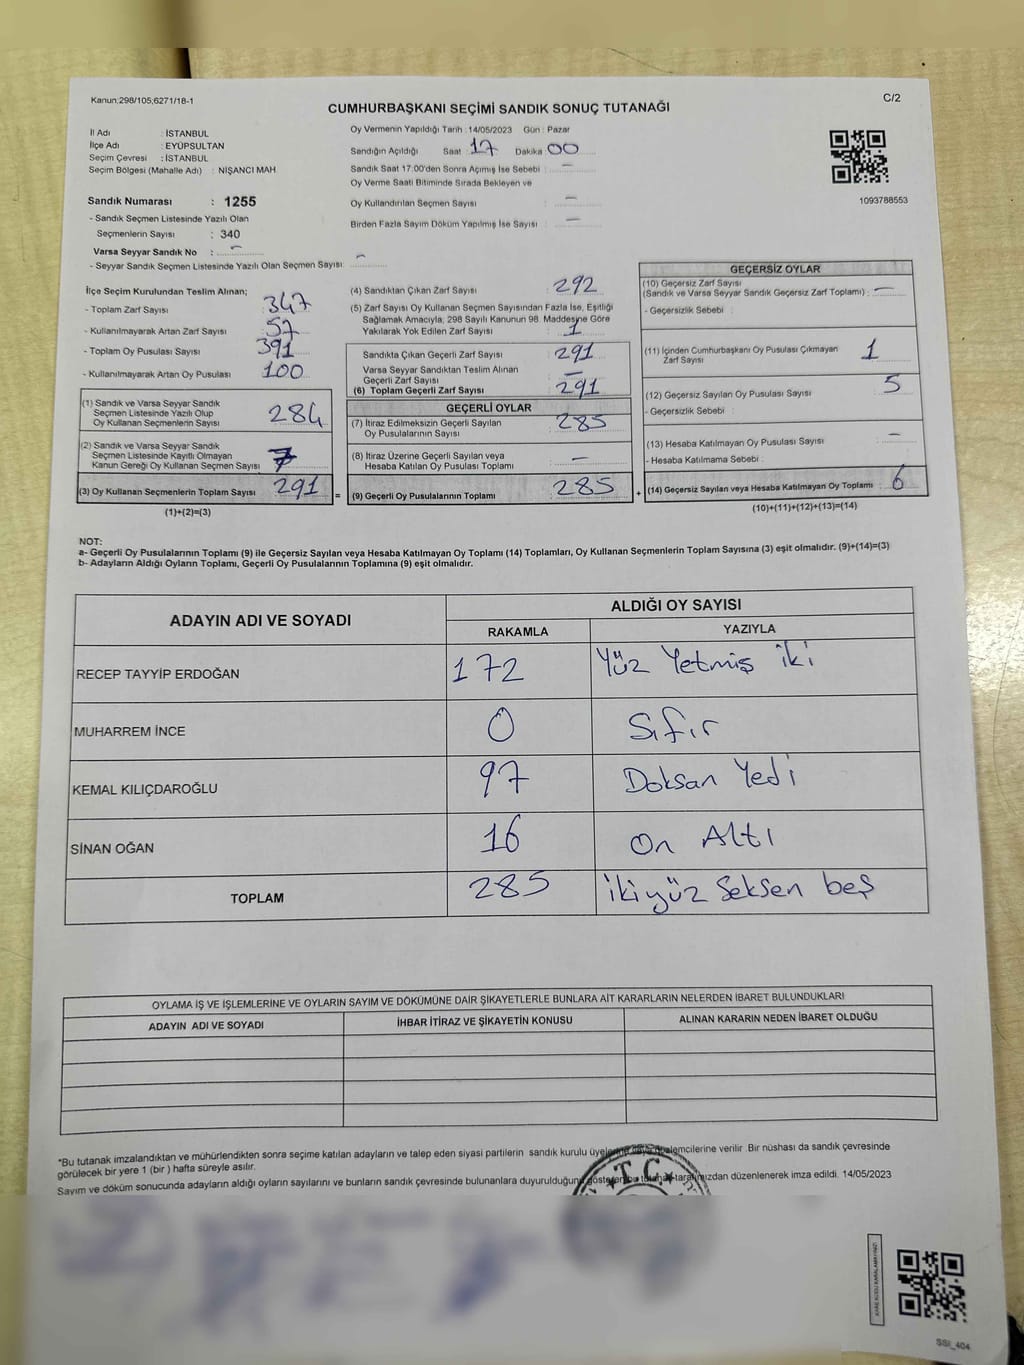 Kanun:298/105;6271/18-1
C/2
CUMHURBAŞKANI SEÇİMİ SANDIK SONUÇ TUTANAĞI
İl Adı : İSTANBUL
İlçe Adı : EYÜPSULTAN
Seçim Çevresi : İSTANBUL
Seçim Bölgesi (Mahalle Adı) : NİŞANCI MAH.
Sandık Numarası : 1255
- Sandık Seçmen Listesinde Yazılı Olan
Seçmenlerin Sayısı : 340
Varsa Seyyar Sandık No : -
- Seyyar Sandık Seçmen Listesinde Yazılı Olan Seçmen Sayısı: -
Oy Vermenin Yapıldığı Tarih : 14/05/2023 Gün : Pazar
Sandığın Açıldığı Saat : 17 Dakika : 00
Sandık Saat 17.00'den Sonra Açımış İse Sebebi : -
Oy Verme Saati Bitiminde Sırada Bekleyen ve
Oy Kullandırılan Seçmen Sayısı : -
Birden Fazla Sayım Döküm Yapılmış İse Sayısı : -
1093788553
İlçe Seçim Kurulundan Teslim Alınan;
- Toplam Zarf Sayısı : 347
- Kullanılmayarak Artan Zarf Sayısı : 57
- Toplam Oy Pusulası Sayısı : 391
- Kullanılmayarak Artan Oy Pusulası : 100
(1) Sandık ve Varsa Seyyar Sandık
Seçmen Listesinde Yazılı Olup
Oy Kullanan Seçmenlerin Sayısı : 284
(2) Sandık ve Varsa Seyyar Sandık
Seçmen Listesinde Kayıtlı Olmayan
Kanun Gereği Oy Kullanan Seçmen Sayısı : 7
(3) Oy Kullanan Seçmenlerin Toplam Sayısı : 291
(1)+(2)=(3)
(4) Sandıktan Çıkan Zarf Sayısı : 292
(5) Zarf Sayısı Oy Kullanan Seçmen Sayısından Fazla İse, Eşitliği
Sağlamak Amacıyla, 298 Sayılı Kanunun 98. Maddesine Göre
Yakılarak Yok Edilen Zarf Sayısı : 1
Sandıkta Çıkan Geçerli Zarf Sayısı : 291
Varsa Seyyar Sandıktan Teslim Alınan
Geçerli Zarf Sayısı : -
(6) Toplam Geçerli Zarf Sayısı : 291
GEÇERLİ OYLAR
(7) İtiraz Edilmeksizin Geçerli Sayılan
Oy Pusulalarının Sayısı : 285
(8) İtiraz Üzerine Geçerli Sayılan veya
Hesaba Katılan Oy Pusulası Toplamı : -
= (9) Geçerli Oy Pusulalarının Toplamı : 285
GEÇERSİZ OYLAR
(10) Geçersiz Zarf Sayısı
(Sandık ve Varsa Seyyar Sandık Geçersiz Zarf Toplamı) : -
- Geçersizlik Sebebi :
(11) İçinden Cumhurbaşkanı Oy Pusulası Çıkmayan
Zarf Sayısı : 1
(12) Geçersiz Sayılan Oy Pusulası Sayısı : 5
- Geçersizlik Sebebi :
(13) Hesaba Katılmayan Oy Pusulası Sayısı : -
- Hesaba Katılmama Sebebi :
+ (14) Geçersiz Sayılan veya Hesaba Katılmayan Oy Toplamı : 6
(10)+(11)+(12)+(13)=(14)
NOT:
a- Geçerli Oy Pusulalarının Toplamı (9) ile Geçersiz Sayılan veya Hesaba Katılmayan Oy Toplamı (14) Toplamları, Oy Kullanan Seçmenlerin Toplam Sayısına (3) eşit olmalıdır. (9)+(14)=(3)
b- Adayların Aldığı Oyların Toplamı, Geçerli Oy Pusulalarının Toplamına (9) eşit olmalıdır.
ADAYIN ADI VE SOYADI ALDIĞI OY SAYISI
RAKAMLA YAZIYLA
RECEP TAYYİP ERDOĞAN 172 Yüz Yetmiş iki
MUHARREM İNCE 0 Sıfır
KEMAL KILIÇDAROĞLU 97 Doksan Yedi
SİNAN OĞAN 16 On Altı
TOPLAM 285 ikiyüz Seksen beş
OYLAMA İŞ VE İŞLEMLERİNE VE OYLARIN SAYIM VE DÖKÜMÜNE DAİR ŞİKAYETLERLE BUNLARA AİT KARARLARIN NELERDEN İBARET BULUNDUKLARI
ADAYIN ADI VE SOYADI İHBAR İTİRAZ VE ŞİKAYETİN KONUSU ALINAN KARARIN NEDEN İBARET OLDUĞU
*Bu tutanak imzalandıktan ve mühürlendikten sonra seçime katılan adayların ve talep eden siyasi partilerin sandık kurulu verilir. Bir nüshası da sandık çevresinde
görülecek bir yere 1 (bir) hafta süreyle asılır.
Sayım ve döküm sonucunda adayların aldığı oyların sayılarını ve bunların sandık çevresinde bulunanlara duyurulduğunu düzenlenerek imza edildi. 14/05/2023
T.C.
SSİ_404